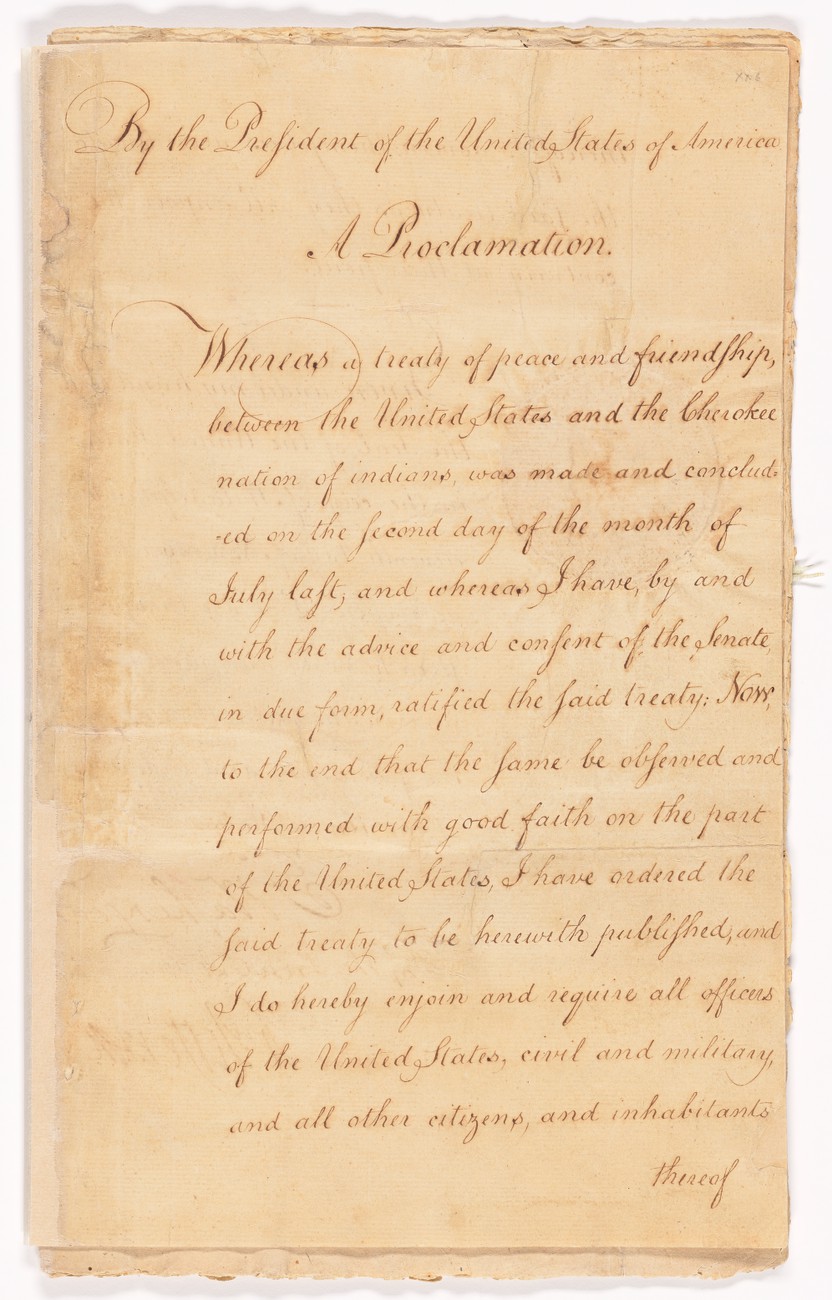 By the President of the United States of America
A Proclamation.
Whereas a treaty of peace and friendship,
between the United States and the Cherokee
nation of indians, was made and conclud-
-ed on the second day of the month of
July last; and whereas I have, by and
with the advice and consent of the Senate,
in due form, ratified the said treaty: Now,
to the end that the same be observed and
performed with good faith on the part
of the United States, I have ordered the
said treaty to be herewith published, and
I do hereby enjoin and require all officers
of the United States, civil and military,
and all other citizens, and inhabitants
thereof